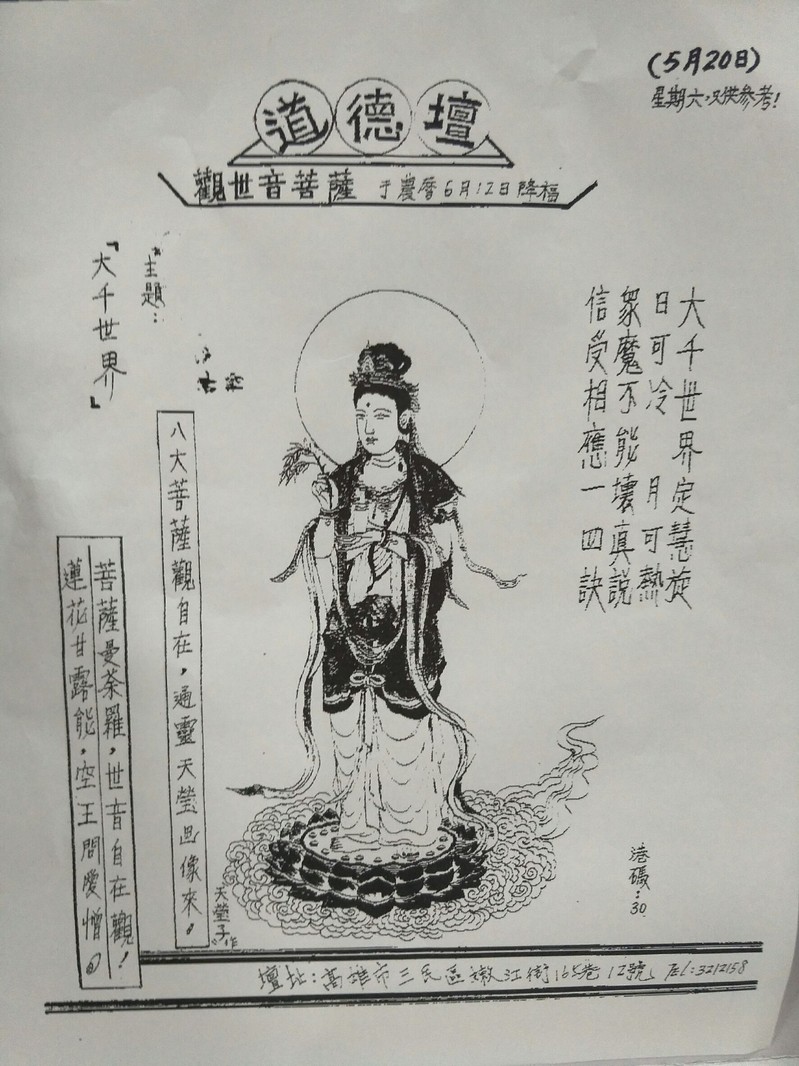 (5月20日)
星期六.只供參考!
道德壇
觀世音菩薩 于農曆6月12日降福
大千世界定慧旋
日可冷 月可熱
眾魔不能壞真説
信受相應一四訣
"主題:
「大千世界」
八大菩薩觀自在,通靈天瑩画像來。
菩薩曼荼羅,世音自在觀!
蓮花甘露能,空王問愛憎。
天瑩子作
港碼:30
壇址:高雄市三民區嫩江街165巷12號 TEL:3212158